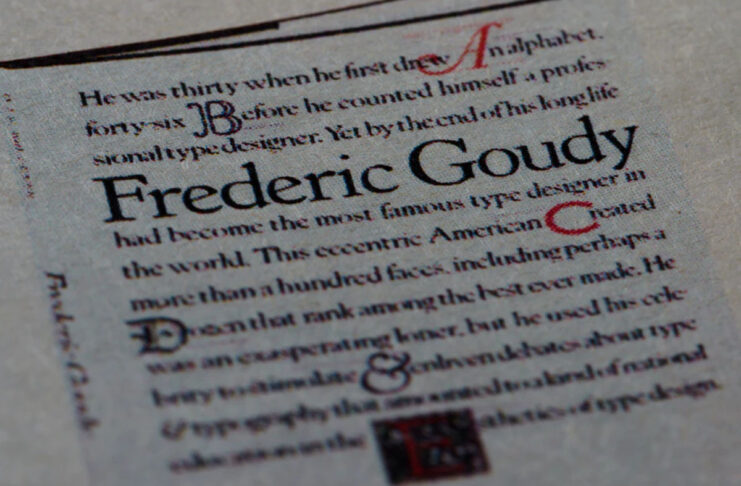 He was thirty when he first drew An alphabet.
forty-six Before he counted himself a profes-
sional type designer. Yet by the end of his long life
Frederic Goudy
had become the most famous type designer in
the world. This eccentric American Created
more than a hundred faces, including perhaps a
Dozen that rank among the best ever made. He
was an exasperating loner, but he used his cele-
brity to stimulate & enliven debates about type
& typography that amounted to a kind of national
education in the thetics of type design.
Frederic Goudy